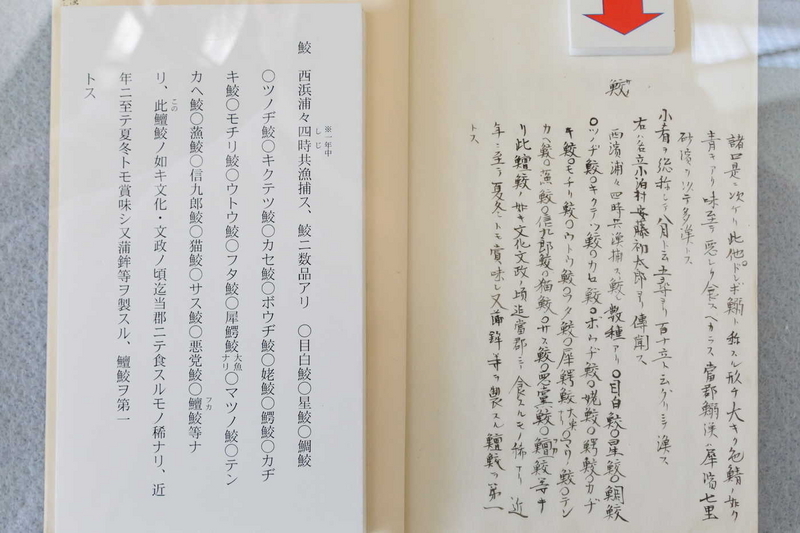 諸口是ニ次ケリ此他ドンボ鰯ト称スル形チ大キク色鯖ノ如ク
青キアリ味至テ悪シク食スヘカラス當郡鰯漁ハ犀濱七里
砂濱ヲ以テ多漁トス
小者ヲ総称シテ八月ト云五尋ヨリ百十立ト云クリニテ漁ス
右ハ名立小泊村安藤初太郎ヨリ傳聞ス
鮫
西濱浦々四時共漁捕ス鮫ニ数種アリ〇目白鮫〇星鮫〇鯛鮫
〇ツノヂ鮫〇キクテツ鮫〇カセ鮫〇ボウヂ鮫〇姥鮫〇鰐鮫〇カヂ
キ鮫〇モチリ鮫〇ウトウ鮫〇フタ鮫〇犀鰐鮫大魚ナリ〇マツノ鮫〇テン
カヘ鮫〇漁鮫〇信九郎鮫〇猫鮫〇サス鮫〇悪党鮫〇鱣鮫等ナ
リ此鱣鮫ノ如キ文化文政ノ頃迄當郡ニテ食スルモノ稀ナリ近
年ニ至テ夏冬トモ賞味シ又蒲鉾等ヲ製スル鱣鮫ヲ第一
トス
鮫 西浜浦々四時共漁捕ス、鮫ニ数品アリ 〇目白鮫〇星鮫〇鯛鮫
※一年中
しじ
〇ツノヂ鮫〇キクテツ鮫〇カセ鮫〇ボウヂ鮫〇姥鮫〇鰐鮫〇カヂ
キ鮫〇モチリ鮫〇ウトウ鮫〇フタ鮫〇犀鰐鮫大魚ナリ〇マツノ鮫〇テン
カヘ鮫〇漁鮫〇信九郎鮫〇猫鮫〇サス鮫〇悪党鮫〇鱣鮫等ナ
フカ
リ、此鱣鮫ノ如キ文化・文政ノ頃迄当郡ニテ食スルモノ稀ナリ、近
この
年ニ至テ夏冬トモ賞味シ又蒲鉾等ヲ製スル、鱣鮫ヲ第一
トス